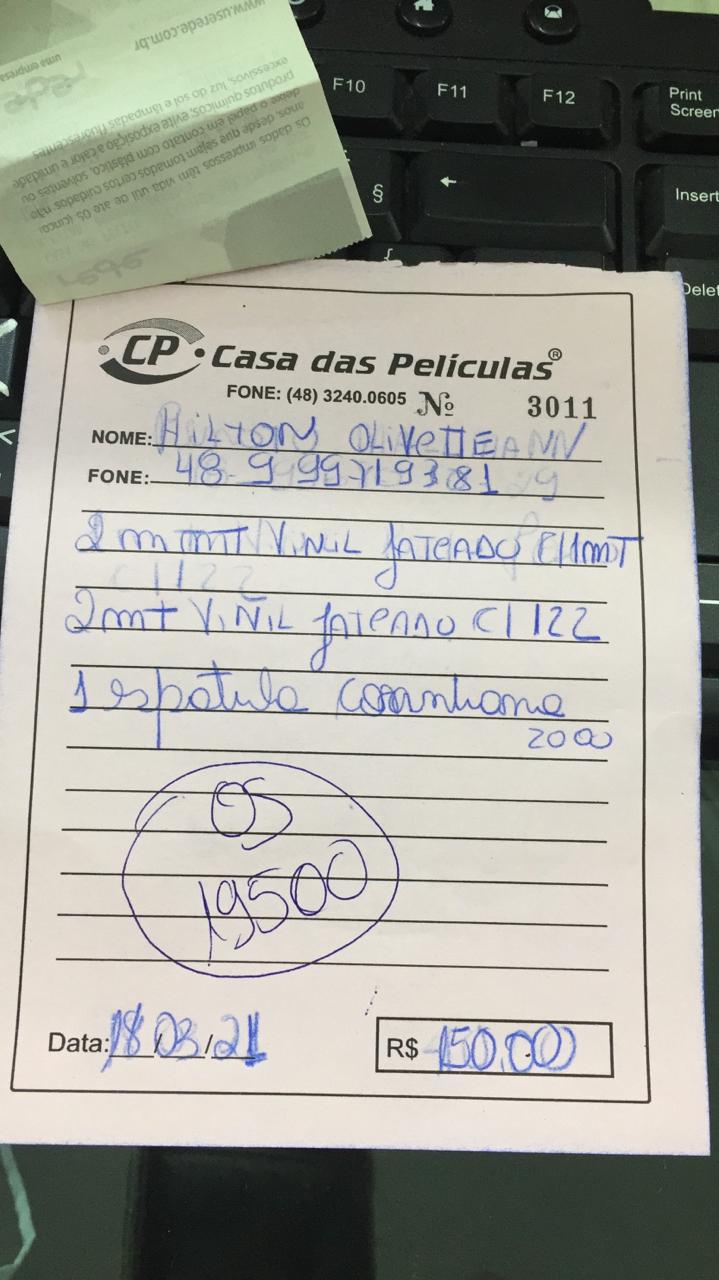 www.userede.com.br
uma empresa
rede
Os dados impressos têm vida útil de até 05 (cinco)
anos, desde que sejam tomados certos cuidados não
deixe o papel em contato com plástico, solventes ou
produtos químicos, evite exposição a calor e umidade
excessivos, luz do sol e lâmpadas fluorescentes
rede
F10
F11
F12
Print
Screen
§
←
Insert
{
Delet
CP Casa das Películas®
FONE: (48) 3240.0605 Nº 3011
NOME: HILTON
FONE: 48-9 99719381
2m mt VINIL JATEADO
2mt VINIL JATEADO C1122
1 espatula
2000
OS
19500
Data: 18/03/21
R$ 150,00